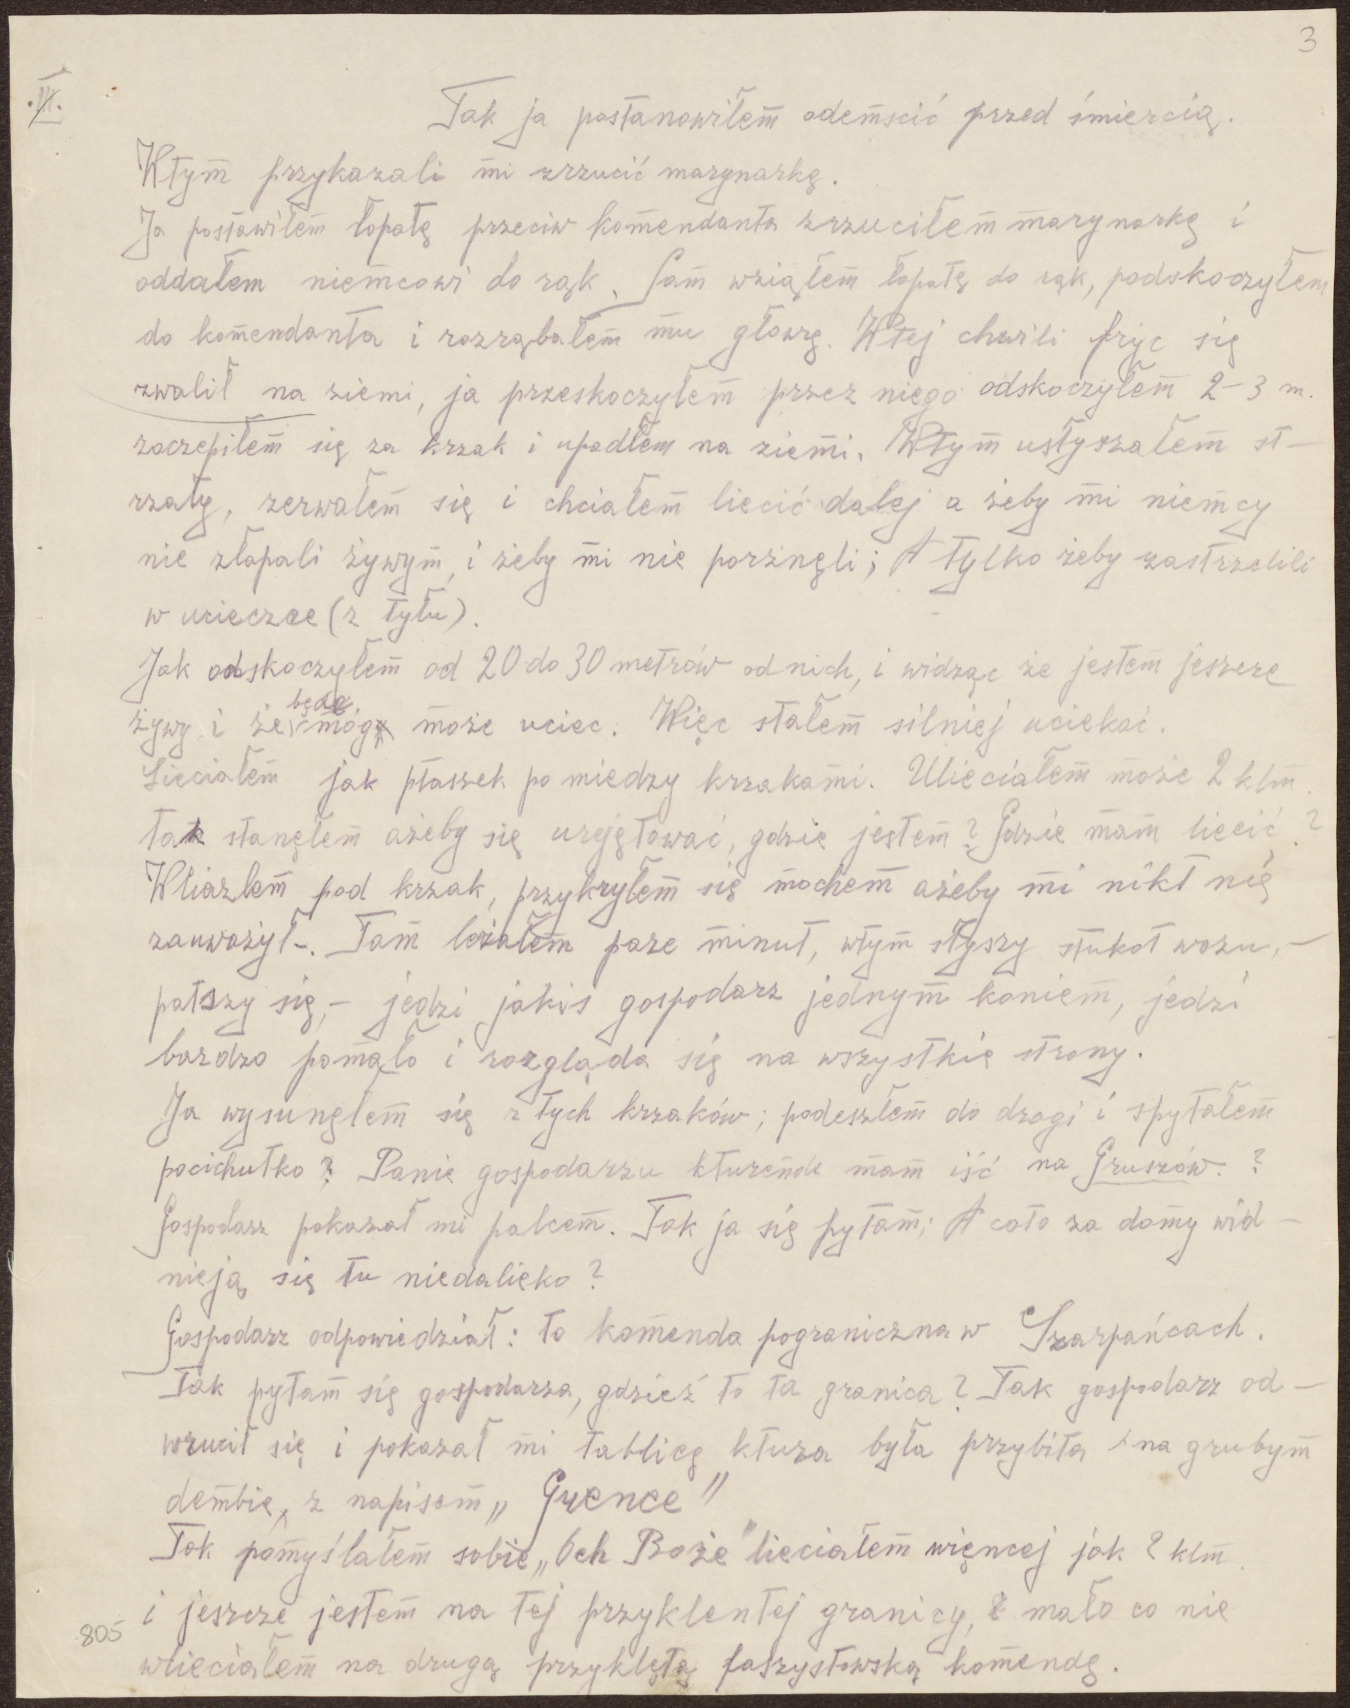 3
III.
Tak ja postanowiłem odemscić przed śmiercią.
Wtym przykazali mi zrzucić marynarkę.
Ja postawiłem łopatę przeciw komendanta zrzuciłem marynarkę i
oddałem niemcowi do rąk, Sam wziąłem łopatę do rąk, podskoczyłem
do komendanta i rozrąbałem mu głowę. Wtej chwili fryc się
zwalił na ziemi, ja przeskoczyłem przez niego odskoczyłem 2-3 m.
zaczepiłem się za krzak i upadłem na ziemi. Wtym usłyszałem st-
rzały, zerwałem się i chciałem liecić dalej a żeby mi niemcy
nie złapali żywym, i żeby mi nie porżnęli; A tylko żeby zastrzelili
w ucieczce (z tyłu).
Jak odskoczyłem od 20 do 30 metrów od nich, i widząc że jestem jeszcze
żywy i że będę mógł może uciec. Więc stałem silniej uciekać.
Lieciałem jak ptaszek pomiedzy krzakami. Ulieciałem może 2 klm.
tak stanęłem ażeby się urejętować, gdzie jestem? Gdzie mam liecić?
Wliazłem pod krzak, przykryłem się mochem ażeby mi nikt nie
zauważył-. Tam leżałem pare minut, wtym słyszy stukot wozu,-
patszy się,- jedzi jakis gospodarz jednym koniem, jedzi
bardzo pomału i rozgląda się na wszystkie strony.
Ja wysunęłem się z tych krzaków; podeszłem do drogi i spytałem
pocichutko? Panie gospodarzu kturende mam iść na Gruszów.?
Gospodarz pokazał mi palcem. Tak ja się pytam; A coto za domy wid-
nieją się tu niedalieko?
Gospodarz odpowiedział: to komenda pograniczna w Szarpańcach.
Tak pytam się gospodarza, gdzieź to ta granica? Tak gospodarz od-
wrucił się i pokazał mi tablicę ktura była przybita na grubym
dembie, z napisem „Grence”
Tak pomyślałem sobie „Och Boże” lieciałem więncej jak 2 klm.
i jeszcze jestem na tej przyklentej granicy, i mało co nie
805
wlieciałem na drugą przyklętą faszystowską komendę.